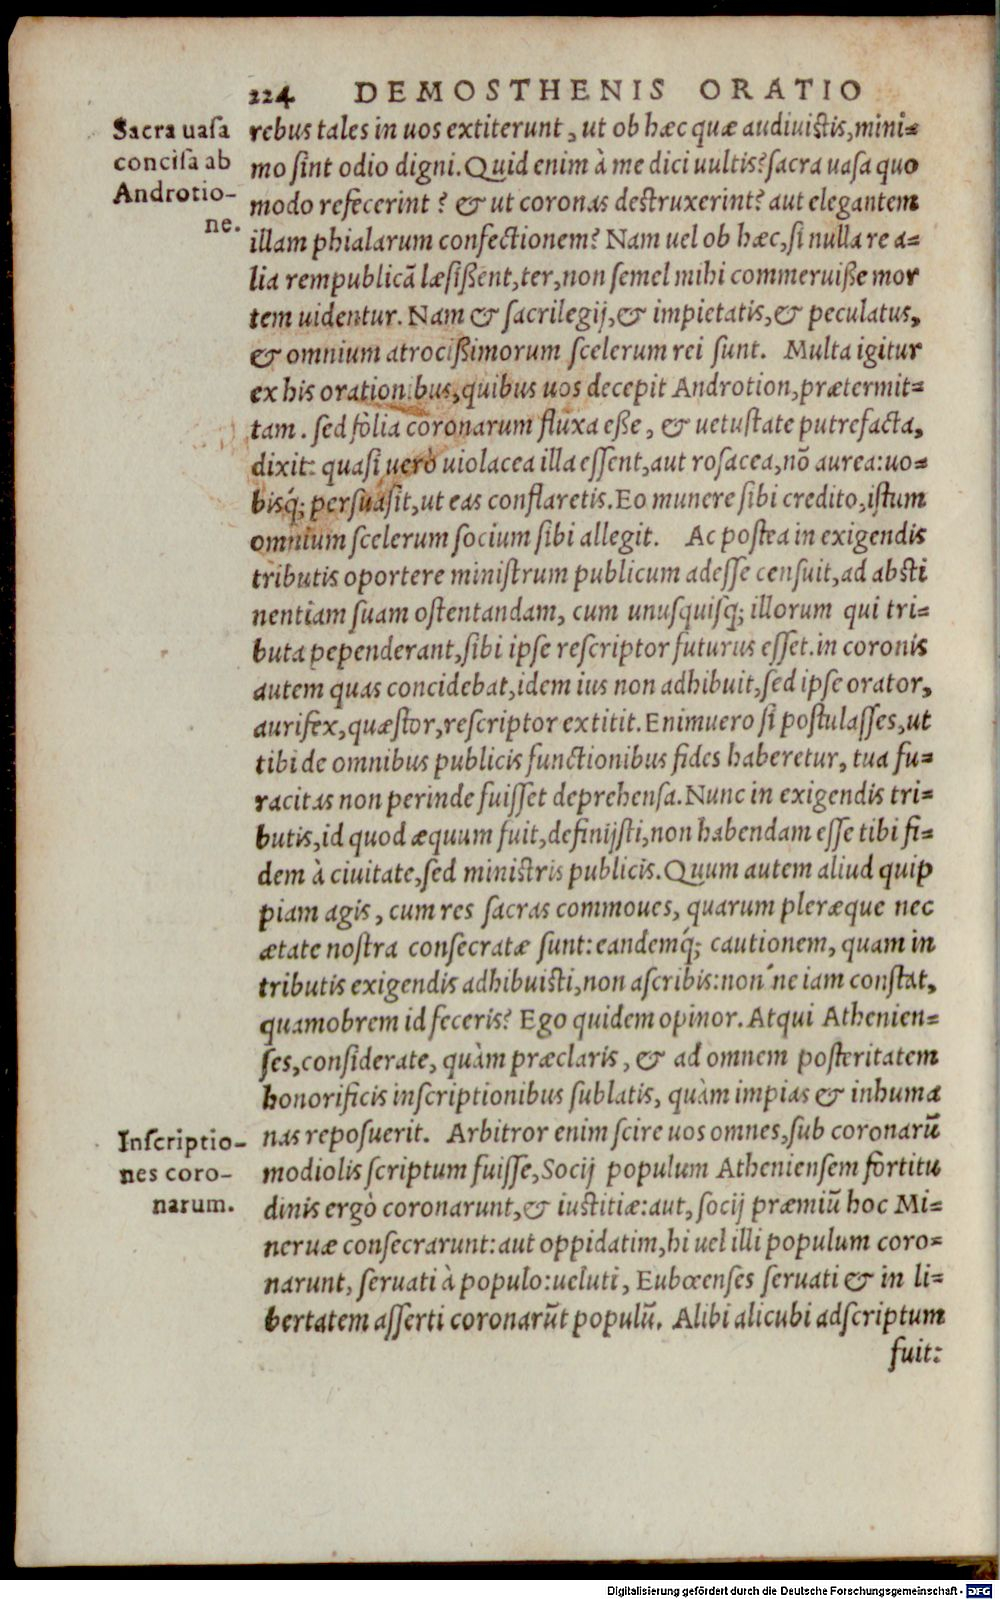 224 DEMOSTHENIS ORATIO
Sacra uasa
concisa ab
Androtio-
ne.
rebus tales in uos extiterunt, ut ob hæc quæ audiuistis, mini=
mo sint odio digni. Quid enim à me dici uultis? sacra uasa quo
modo refecerint? & ut coronas destruxerint? aut elegantem
illam phialarum confectionem? Nam uel ob hæc, si nulla re a=
lia rempublicā læsißent, ter, non semel mihi commeruiße mor
tem uidentur. Nam & sacrilegij, & impietatis, & peculatus,
& omnium atrocißimorum scelerum rei sunt. Multa igitur
ex his orationibus, quibus uos decepit Androtion, prætermit=
tam. sed folia coronarum fluxa eße, & uetustate putrefacta,
dixit: quasi uerò uiolacea illa essent, aut rosacea, nō aurea: uo=
bisq́; persuasit, ut eas conflaretis. Eo munere sibi credito, istum
omnium scelerum socium sibi allegit. Ac postea in exigendis
tributis oportere ministrum publicum adesse censuit, ad absti
nentiam suam ostentandam, cum unusquisq; illorum qui tri=
buta pependerant, sibi ipse rescriptor futurus esset. in coronis
autem quas concidebat, idem ius non adhibuit, sed ipse orator,
aurifex, quæstor, rescriptor extitit. Enimuero si postulasses, ut
tibi de omnibus publicis functionibus fides haberetur, tua fu=
racitas non perinde fuisset deprehensa. Nunc in exigendis tri=
butis, id quod æquum fuit, definijsti, non habendam esse tibi fi=
dem à ciuitate, sed ministris publicis. Quum autem aliud quip
piam agis, cum res sacras commoues, quarum pleræque nec
ætate nostra consecratæ sunt: eandemq́; cautionem, quam in
tributis exigendis adhibuisti, non ascribis: non´ne iam constat,
quamobrem id feceris? Ego quidem opinor. Atqui Athenien=
ses, considerate, quàm præclaris, & ad omnem posteritatem
honorificis inscriptionibus sublatis, quàm impias & inhuma
Inscriptio-
nes coro-
narum.
nas reposuerit. Arbitror enim scire uos omnes, sub coronarū
modiolis scriptum fuisse, Socij populum Atheniensem fortitu
dinis ergò coronarunt, & iustitiæ: aut, socij præmiū hoc Mi=
neruæ consecrarunt: aut oppidatim, hi uel illi populum coro=
narunt, seruati à populo: ueluti, Euboeenses seruati & in li=
bertatem asserti coronarūt populū. Alibi alicubi adscriptum
fuit:
Digitalisierung gefördert durch die Deutsche Forschungsgemeinschaft - DFG